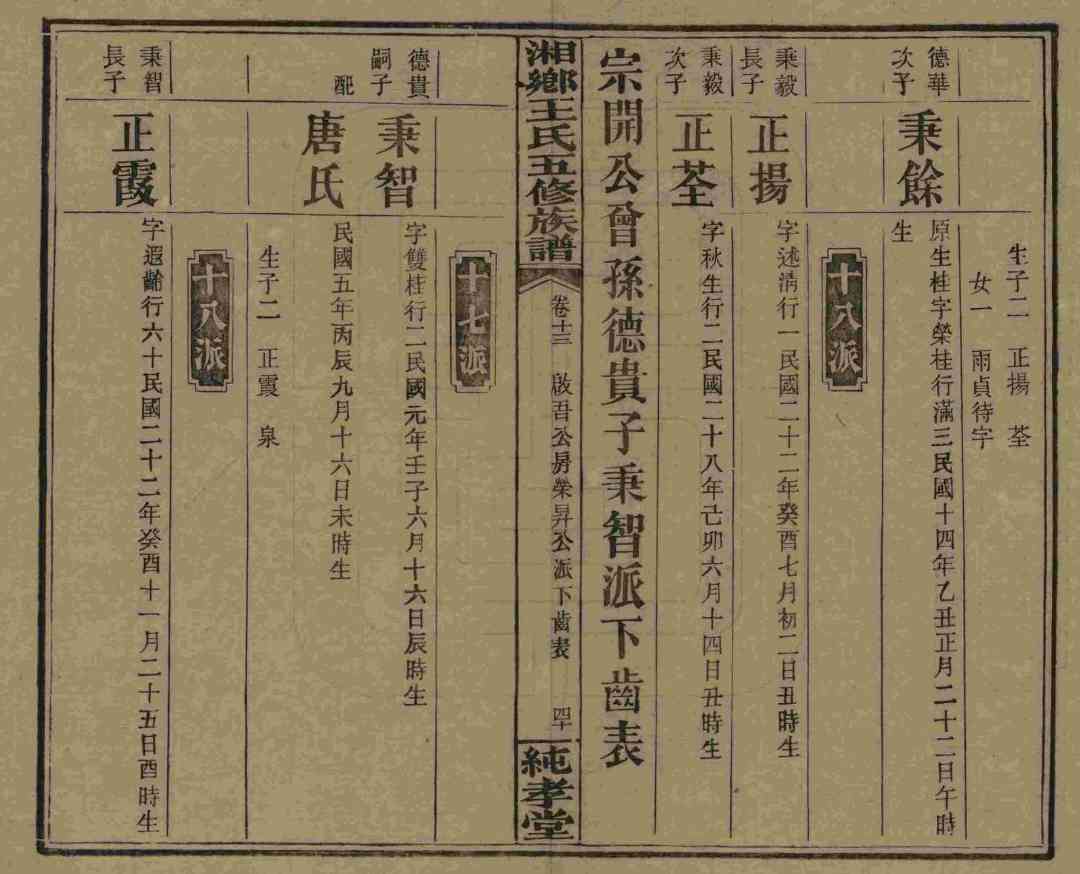 生子二　正揚　荃
女一　雨貞待字
德華
次子
秉餘
原生桂字榮桂行滿三民國十四年乙丑正月二十二日午時
生
十八派
秉毅
長子
正揚
字述清行一民國二十二年癸酉七月初二日丑時生
秉毅
次子
正荃
字秋生行二民國二十八年己卯六月十四日丑時生
宗開公曾孫德貴子秉智派下齒表
湘鄉王氏五修族譜
卷十三　啟吾公房榮昇公派下齒表　四十
純孝堂
十七派
德貴
嗣子
秉智
字雙桂行二民國元年壬子六月十六日辰時生
配
唐氏
民國五年丙辰九月十六日未時生
生子二　正霞　泉
十八派
秉智
長子
正霞
字遐齡行六十民國二十二年癸酉十一月二十五日酉時生